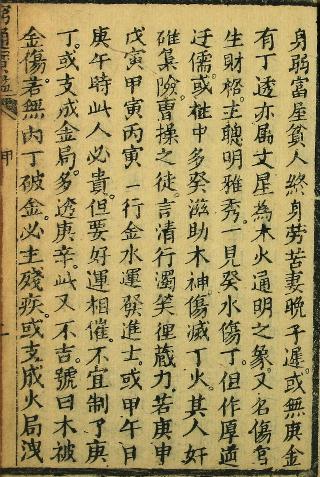 身弱富屋貧人終身劳苦妻晚子遲或無庚金
有丁透亦属丈星為木火通明之象又名傷官
生财格主聰明雅秀一見癸水傷丁但作厚道
迂儒或柱中多癸滋助木神傷滅丁火其人奸
雄梟險曹操之徒言清行濁笑俚藏刀若庚申
戊寅甲寅丙寅一行金水運發進士或甲午日
庚午時此人必貴但要好運相催不宜制了庚
丁或支成金局多透庚辛此又不吉號曰木被
金傷若無丙丁破金必主殘疾或支成火局洩
甲